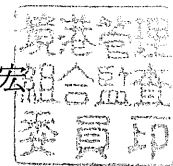 境港管理
宏
組合監査
委員印